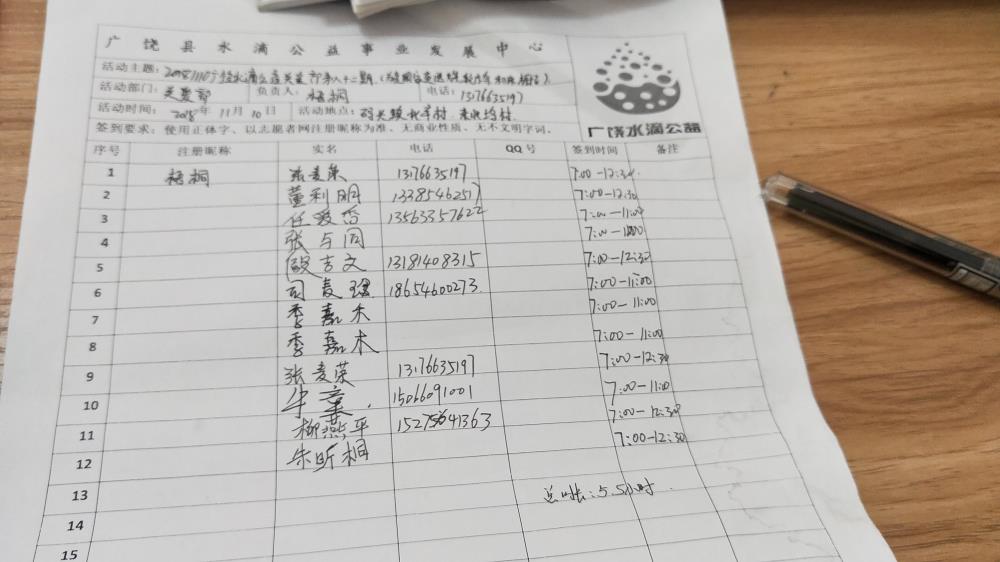 广饶县水滴公益事业发展中心
活动主题:
活动部门: 关爱部 负责人: 梧桐 电话: 13176635197
活动时间: 2018年 11月 10日 活动地点:
签到要求: 使用正体字、以志愿者网注册昵称为准、无商业性质、无不文明字词。
广饶水滴公益
序号 注册昵称 实名 电话 QQ号 签到时间 备注
1 梧桐 张麦荣 13176635197 7:00-12:30
2 董利朋 13385462517 7:00-12:30
3 任爱香 13563357622 7:00-11:00
4 张与同 7:00-
5 殴吉文 13181408315 7:00-12:30
6 司麦 18654600273 7:00-11:00
7 季嘉木 7:00-11:00
8 季嘉木 7:00-11:00
9 张麦荣 13176635197 7:00-12:30
10 牛童 15066091001 7:00-11:00
11 柳燕平 15275641363 7:00-12:30
12 朱昕桐 7:00-12:30
13 总时长:5.5小时
14
15